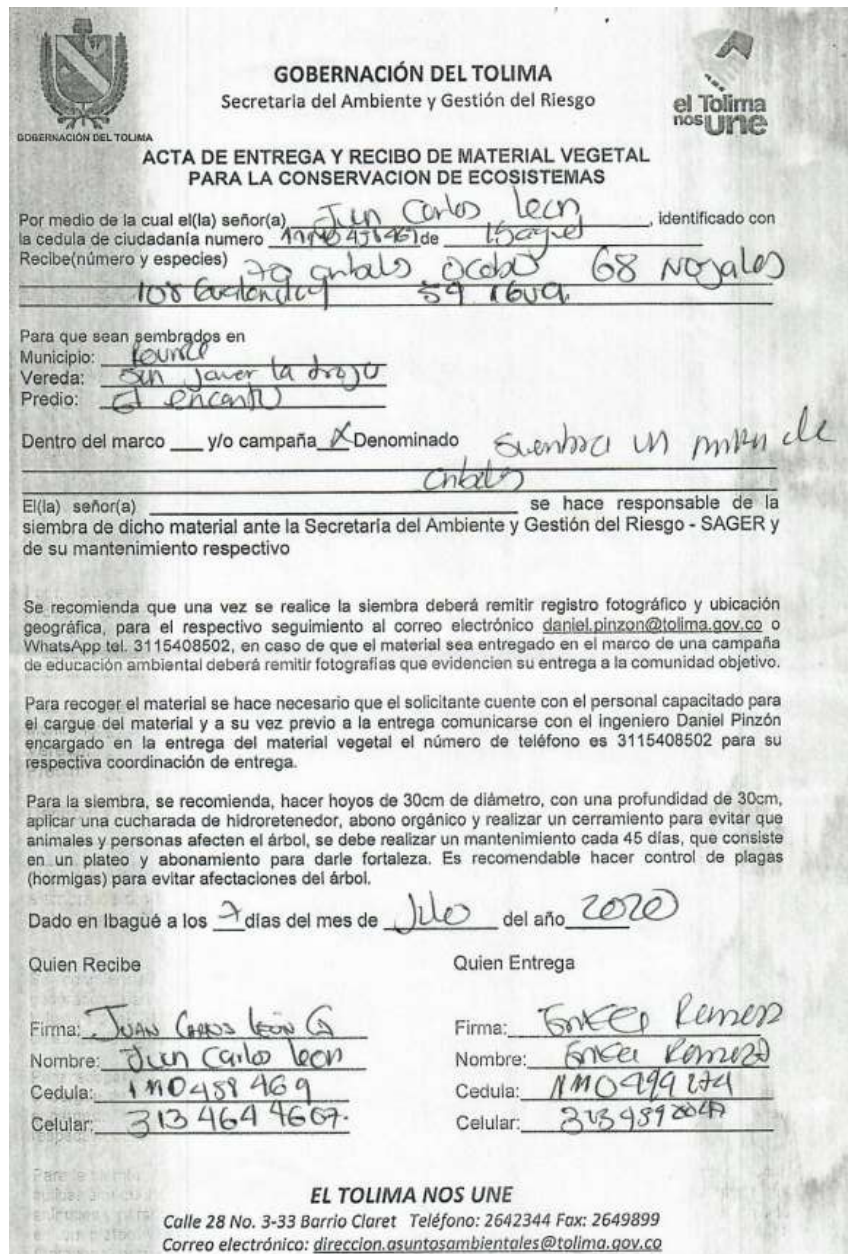 GOBERNACIÓN DEL TOLIMA
Secretaria del Ambiente y Gestión del Riesgo
GOBERNACIÓN DEL TOLIMA
el Tolima
nos une
ACTA DE ENTREGA Y RECIBO DE MATERIAL VEGETAL
PARA LA CONSERVACION DE ECOSISTEMAS
Por medio de la cual el(la) señor(a) Juan Carlos Leon, identificado con
la cedula de ciudadanía numero de Ibague
Recibe(número y especies) 70 arboles Ocobos 68 Nogales
108 Gualanday 59
Para que sean sembrados en
Municipio:
Vereda: San Javer la
Predio: El encanto
Dentro del marco y/o campaña X Denominado Siembra un millon de
arboles
El(la) señor(a) se hace responsable de la
siembra de dicho material ante la Secretaría del Ambiente y Gestión del Riesgo - SAGER y
de su mantenimiento respectivo
Se recomienda que una vez se realice la siembra deberá remitir registro fotográfico y ubicación
geográfica, para el respectivo seguimiento al correo electrónico daniel.pinzon@tolima.gov.co o
WhatsApp tel. 3115408502, en caso de que el material sea entregado en el marco de una campaña
de educación ambiental deberá remitir fotografías que evidencien su entrega a la comunidad objetivo.
Para recoger el material se hace necesario que el solicitante cuente con el personal capacitado para
el cargue del material y a su vez previo a la entrega comunicarse con el ingeniero Daniel Pinzón
encargado en la entrega del material vegetal el número de teléfono es 3115408502 para su
respectiva coordinación de entrega.
Para la siembra, se recomienda, hacer hoyos de 30cm de diámetro, con una profundidad de 30cm,
aplicar una cucharada de hidroretenedor, abono orgánico y realizar un cerramiento para evitar que
animales y personas afecten el árbol, se debe realizar un mantenimiento cada 45 días, que consiste
en un plateo y abonamiento para darle fortaleza. Es recomendable hacer control de plagas
(hormigas) para evitar afectaciones del árbol.
Dado en Ibagué a los 7 días del mes de Julio del año 2020
Quien Recibe Quien Entrega
Firma: JUAN CARLOS LEÓN G Firma:
Nombre: Juan Carlos Leon Nombre:
Cedula: Cedula:
Celular: 313 464 4607. Celular:
EL TOLIMA NOS UNE
Calle 28 No. 3-33 Barrio Claret Teléfono: 2642344 Fax: 2649899
Correo electrónico: direccion.asuntosambientales@tolima.gov.co